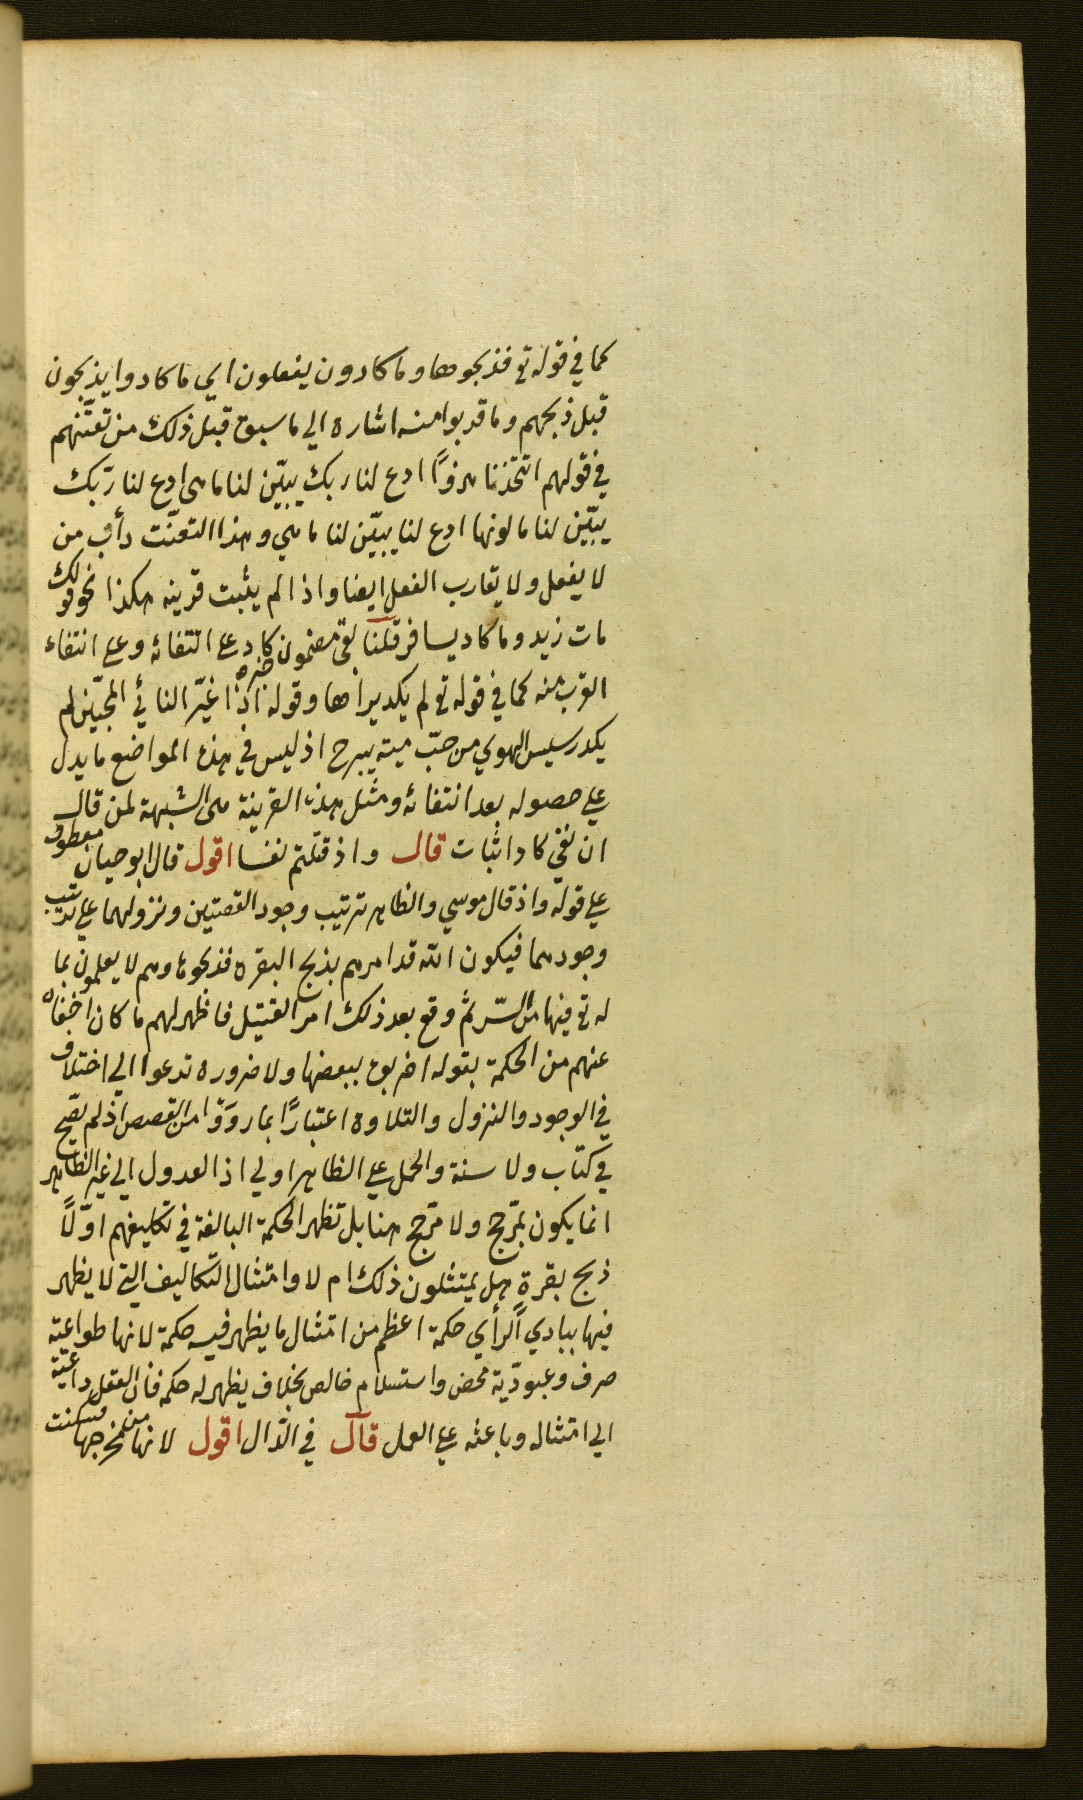 كما في قوله تع فذبحوها وما كادون يفعلون اي ما كادوا يذبحون
قبل ذبحهم وما قربوا منه اشاره الي ما سبق قبل ذلك من تعنّتهم
في قولهم اتتخذنا هزوًا ادع لنا ربك يبيّن لنا ما هى ادع لنا ربّك
يبيّن لنا ما لونها ادع لنا يبيّن لنا ما هي وهذا التعنّت دأب من
لا يفعل ولا يقارب الفعل ايضا واذا لم يثبت قرينه هكذا نحو قولك
مات زيد وما كاد يسافر قلنا بقى مضمون كاد على انتفائه وعلى انتفاء
القرب منه كما في قوله تع لم يكد يراها وقوله اذا غيّر النائي المحبّين لم
يكد رسيس الهوي من حبّ ميته يبرح اذ ليس في هذه المواضع ما يدل
علي حصوله بعد انتفائه ومثل هذه القرينة هى الشبهة لمن قال
ان نفي كاد اثبات قال واذ قتلتم نفسا اقول قال ابو حيان معطوف
علي قوله واذ قال موسي والظاهر ترتيب وجود القصتين ونزولهما علي ترتيب
وجودهما فيكون الله قد امرهم بذبح البقره فذبحوها وهم لا يعلمون بما
له تع فيها من السّر ثم وقع بعد ذلك امر القتيل فاظهر لهم ما كان اخفاه
عنهم من الحكمة بقوله اضربوه ببعضها ولا ضروره تدعوا الي اختلاف
في الوجود والنزول والتلاوة اعتبارًا بما روَوَا من القصص اذ لم يصّح
في كتاب ولا سنة والحمل علي الظاهر اولي اذ العدول الي غير الظاهر
انما يكون بمّرجح ولا مرّجح هنا بل تظهر الحكمة البالغة في تكليفهم اوّلًا
ذبح بقرة هل يمتثلون ذلك ام لا وامتثال التكاليف التي لا يظهر
فيها ببادي الرأي حكمة اعظم من امتثال ما يظهر فيه حكمة لانها طواعية
صرف وعبوديّة محض واستسلام خالص بخلاف يظهر له حكمه فان العقل داعية
الي امتثاله وباعثه علي العمل قال في الدّال اقول لانها من مخرجها فسكنت